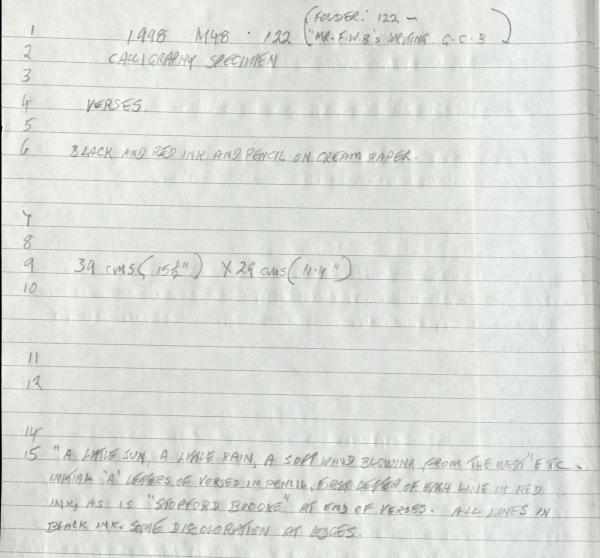 (FOLDER: 122 -
1 1998 M48 . 122 "MR. F.W.B's WRITING G.C.B)
2 CALLIGRAPHY SPECIMEN
3
4 VERSES.
5
6 BLACK AND RED INK AND PENCIL ON CREAM PAPER.
7
8
9 39 cms (15½") X 29 cms (11.4")
10
11
12
14
15 "A LITTLE SUN, A LITTLE RAIN, A SOFT WIND BLOWING FROM THE WEST" ETC.
INITIAL "A" LETTERS OF VERSES IN PENCIL, FIRST LETTER OF EACH LINE IN RED
INK, AS IS "STOPFORD BROOKE" AT END OF VERSES. ALL LINES IN
BLACK INK. SOME DISCOLORATION AT EDGES.